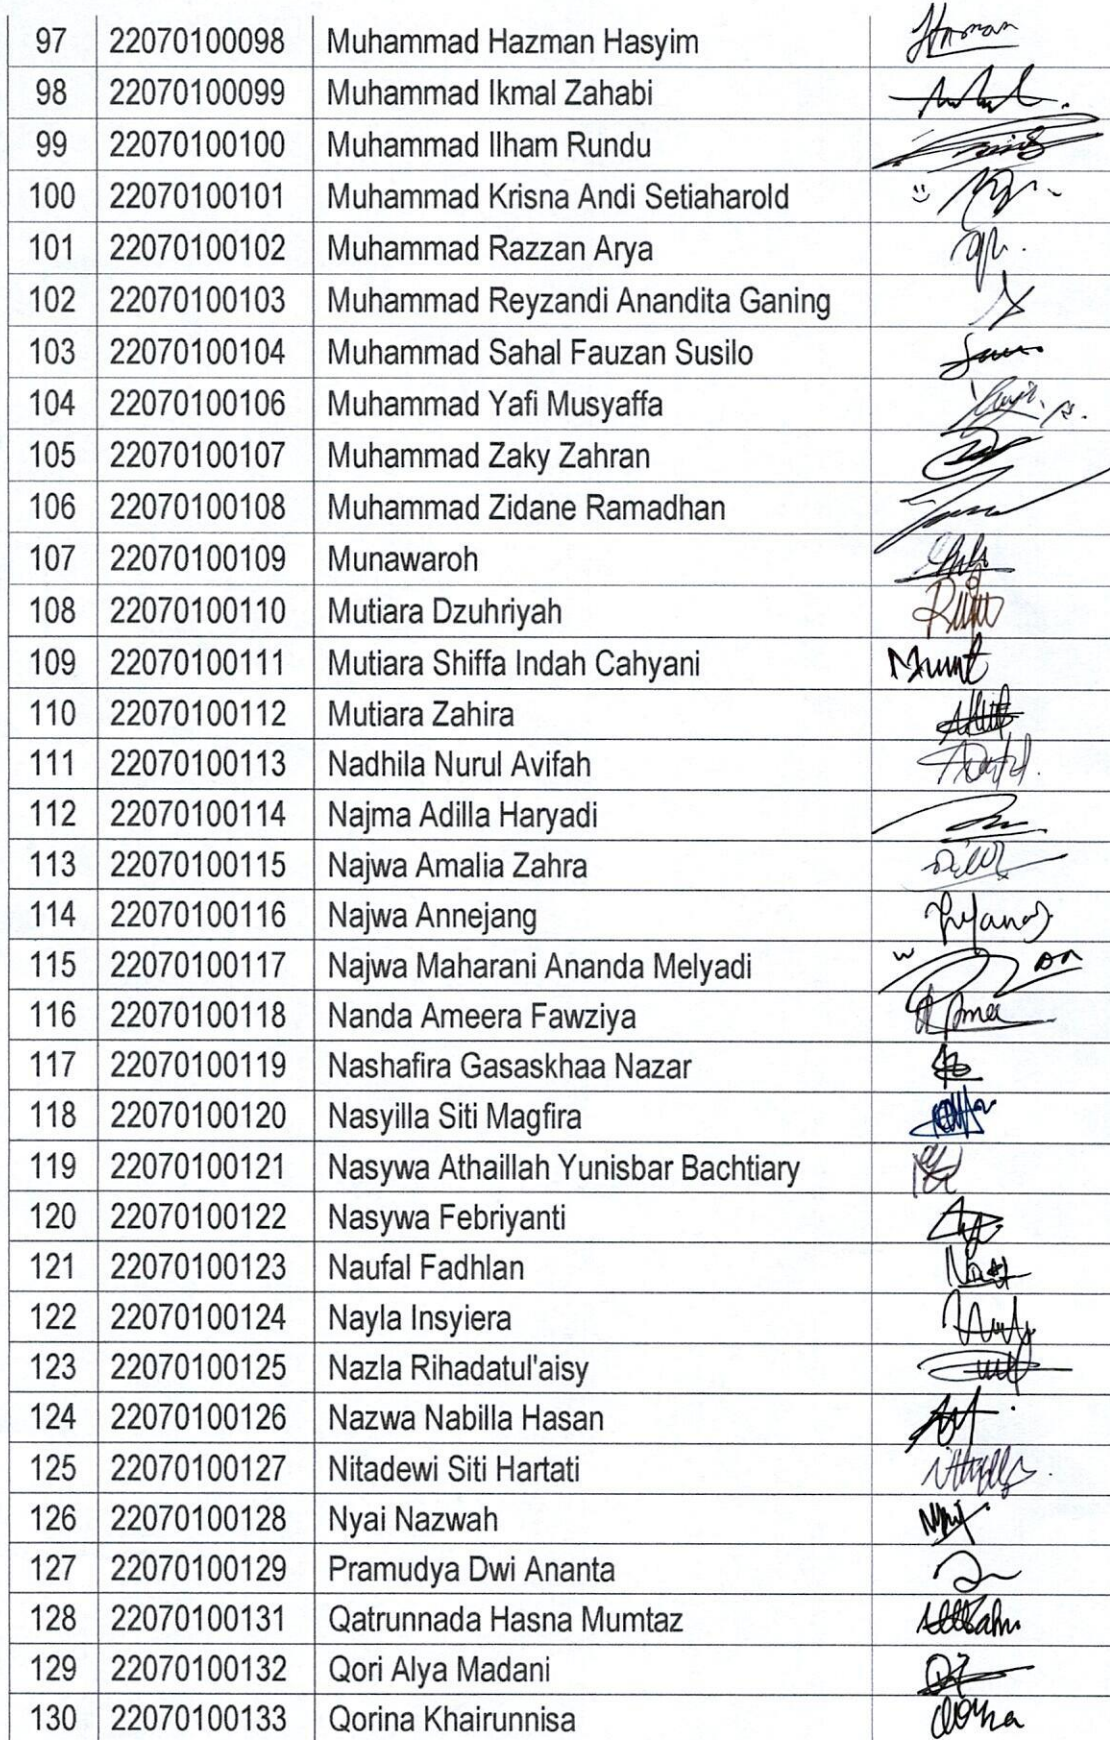 97 22070100098 Muhammad Hazman Hasyim
98 22070100099 Muhammad Ikmal Zahabi
99 22070100100 Muhammad Ilham Rundu
100 22070100101 Muhammad Krisna Andi Setiaharold
101 22070100102 Muhammad Razzan Arya
102 22070100103 Muhammad Reyzandi Anandita Ganing
103 22070100104 Muhammad Sahal Fauzan Susilo
104 22070100106 Muhammad Yafi Musyaffa
105 22070100107 Muhammad Zaky Zahran
106 22070100108 Muhammad Zidane Ramadhan
107 22070100109 Munawaroh
108 22070100110 Mutiara Dzuhriyah
109 22070100111 Mutiara Shiffa Indah Cahyani
110 22070100112 Mutiara Zahira
111 22070100113 Nadhila Nurul Avifah
112 22070100114 Najma Adilla Haryadi
113 22070100115 Najwa Amalia Zahra
114 22070100116 Najwa Annejang
115 22070100117 Najwa Maharani Ananda Melyadi
116 22070100118 Nanda Ameera Fawziya
117 22070100119 Nashafira Gasaskhaa Nazar
118 22070100120 Nasyilla Siti Magfira
119 22070100121 Nasywa Athaillah Yunisbar Bachtiary
120 22070100122 Nasywa Febriyanti
121 22070100123 Naufal Fadhlan
122 22070100124 Nayla Insyiera
123 22070100125 Nazla Rihadatul'aisy
124 22070100126 Nazwa Nabilla Hasan
125 22070100127 Nitadewi Siti Hartati
126 22070100128 Nyai Nazwah
127 22070100129 Pramudya Dwi Ananta
128 22070100131 Qatrunnada Hasna Mumtaz
129 22070100132 Qori Alya Madani
130 22070100133 Qorina Khairunnisa